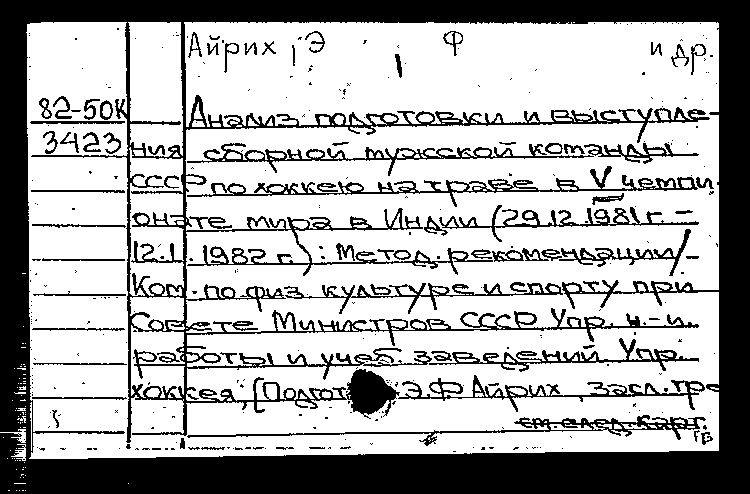 Айрих, Э Ф и др.
82-50К Анализ подготовки и выступле-
3423 ния сборной мужской команды
СССР по хоккею на траве в V чемпи-
онате мира в Индии (29.12.1981 г. -
12.1.1982 г.): Метод. рекомендации/-
Ком. по физ. культуре и спорту при
Совете Министров СССР Упр. н.-и.
работы и учеб. заведений. Упр.
хоккея; [Подгот Э.Ф Айрих, засл. тре
см. след. карт.
ГВ